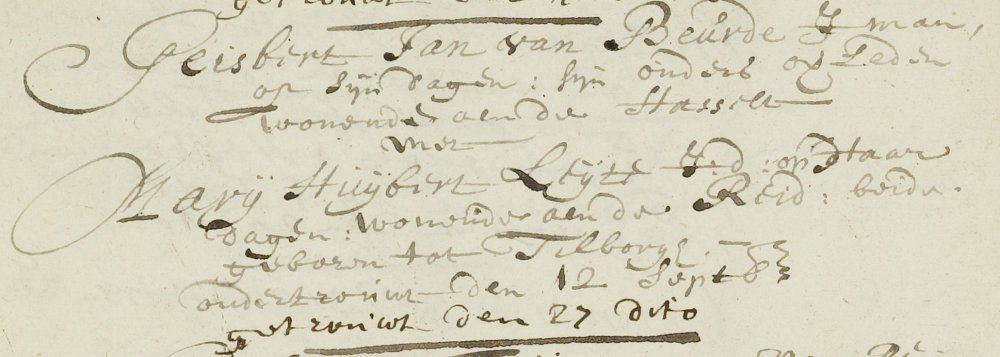 Geisbert Jan van Beurde J man,
op sijn dagen: sijn ouders op Leden
wonende aen de Hasselt
met
Marij Huijbert Leijte J:d: op Haar
dagen: wonende aen de Reid: beide
geboren tot Tilborg
ondertrouwt den 12 Sept 83
getrouwt den 27 dito